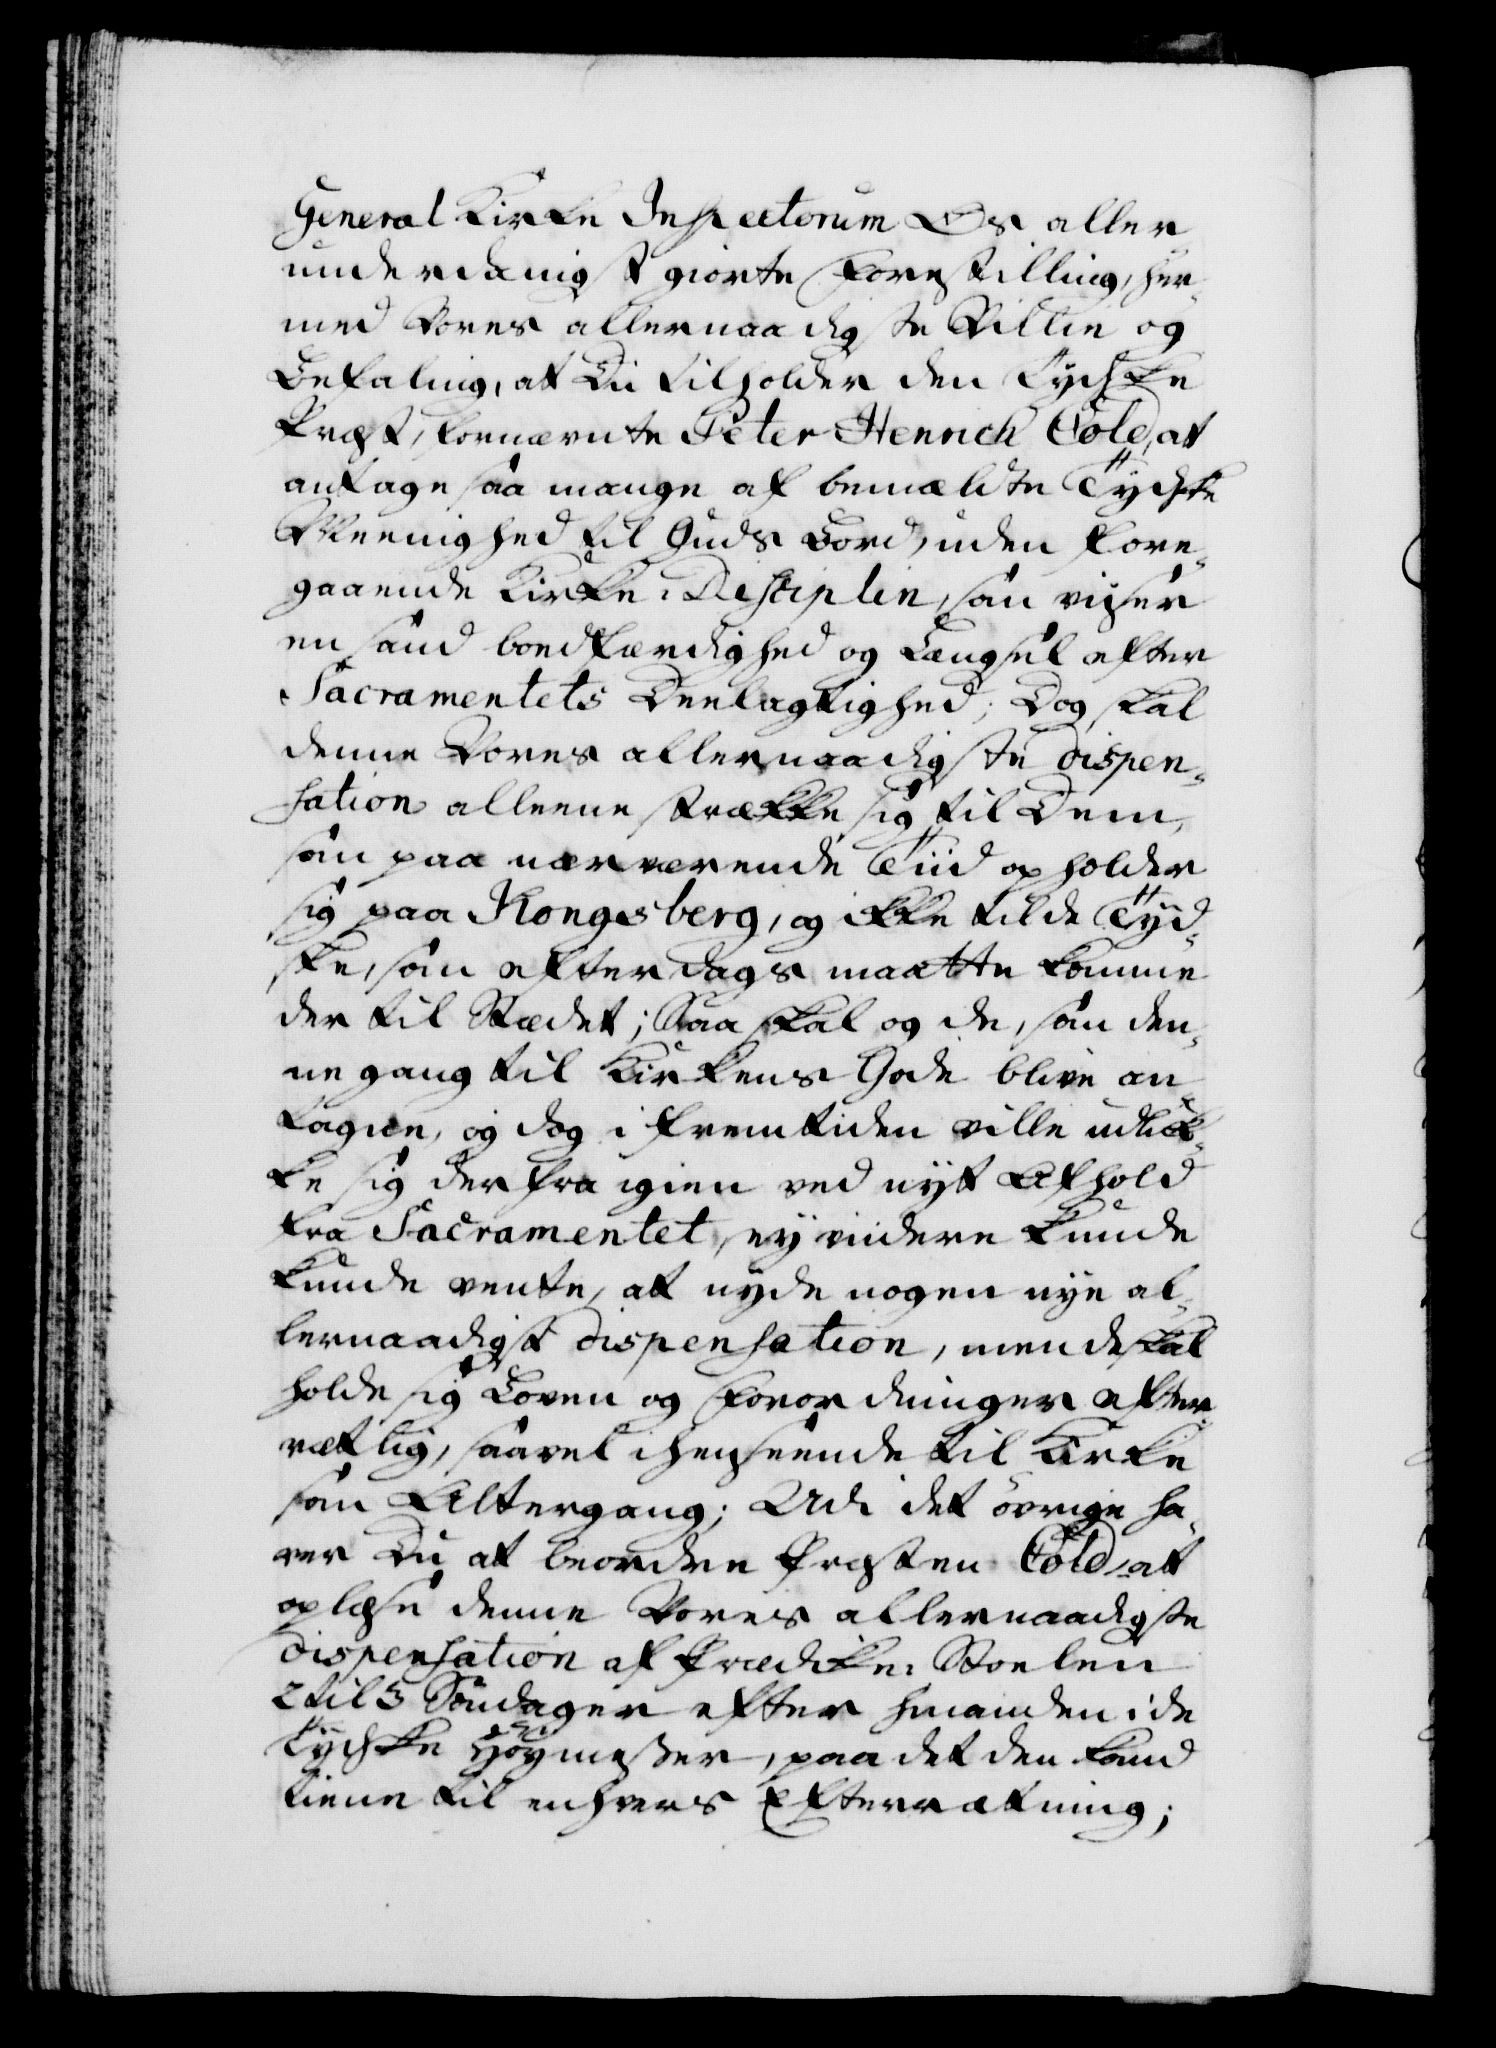 General Kirke Inspectorum Os aller
underdanigst giorte Forestilling, her-
med Vores allernaadigste Villie og
Befaling, at Du tilholder den Tydske
Præst, fornævnte Peter Henrich Cold, at
antage saa mange af bemældte Tydske
Meenighed til Guds Bord, uden fore-
gaaende Kirke-Disciplin, som viiser
en sand bodfærdighed og Længsel efter
Sacramentets Deelagtighed; Dog skal
denne Vores allernaadigste dispen-
sation alleene strække sig til Dem,
som paa nærværende Tiid opholder
sig paa Kongsberg, og ikke til de Tyd-
ske, som efter dags maatte komme
der til Stædet; Saa skal og de, som den-
ne gang til Kirkens Gode blive an-
tagne, og dog i fremtiden ville udluk-
ke sig derfra igien ved nyt Afhold
fra Sacramentet, ey videre kunde
kunde vente, at nyde nogen nye al-
lernaadigst dispensation, men de skal
holde sig Loven og Forordninger efter-
rættlig, saavel i henseende til Kirke
som Altergang; Udi det övrige ha-
ver Du at beordre Præsten Cold, at
oplæse denne Vores allernaadigste
dispensation af Prædike-Stoelen
2 til 3 Söndager efter hinanden i de
Tydske Höymesser, paa det den kand
tiene til enhvers Efterrætning;